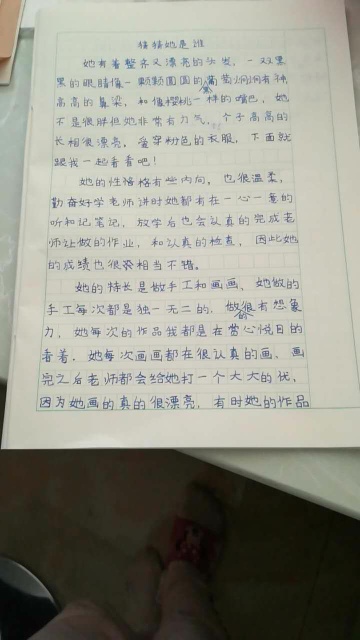 猜猜她是谁
她有着整齐又漂亮的头发，一双黑
黑的眼睛像一颗颗圆圆的葡萄炯炯有神
高高的鼻梁，和像樱桃一样的嘴巴，她
不是很胖但她非常有力气，个子高高的
长相很漂亮，爱穿粉色的衣服，下面就
跟我一起看看吧！
她的性格有些内向，也很温柔，
勤奋好学老师讲时她都有在一心一意的
听和记笔记，放学后也会认真的完成老
师让做的作业，和认真的检查，因此她
的成绩也很相当不错。
她的特长是做手工和画画，她做的
手工每次都是独一无二的，做的很有想象
力，她每次的作品我都是在赏心悦目的
看着，她每次画画都在很认真的画，画
完之后老师都会给她打一个大大的优，
因为她画的真的很漂亮，有时她的作品